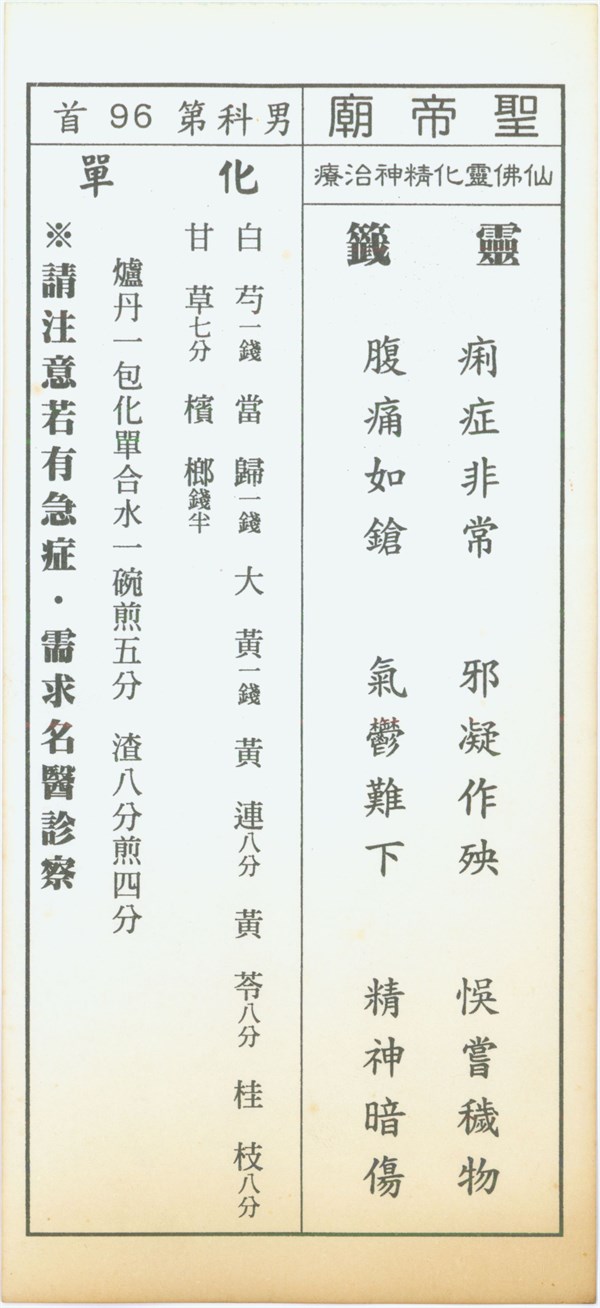 聖帝廟
仙佛靈化精神治療
靈籤
痢症非常 邪凝作殃 悞嘗穢物
腹痛如鎗 氣鬱難下 精神暗傷
男科第96首
化單
白芍一錢 當歸一錢 大黃一錢 黃連八分 黃芩八分 桂枝八分
甘草七分 檳榔錢半
爐丹一包化單合水一碗煎五分 渣八分煎四分
※請注意若有急症・需求名醫診察